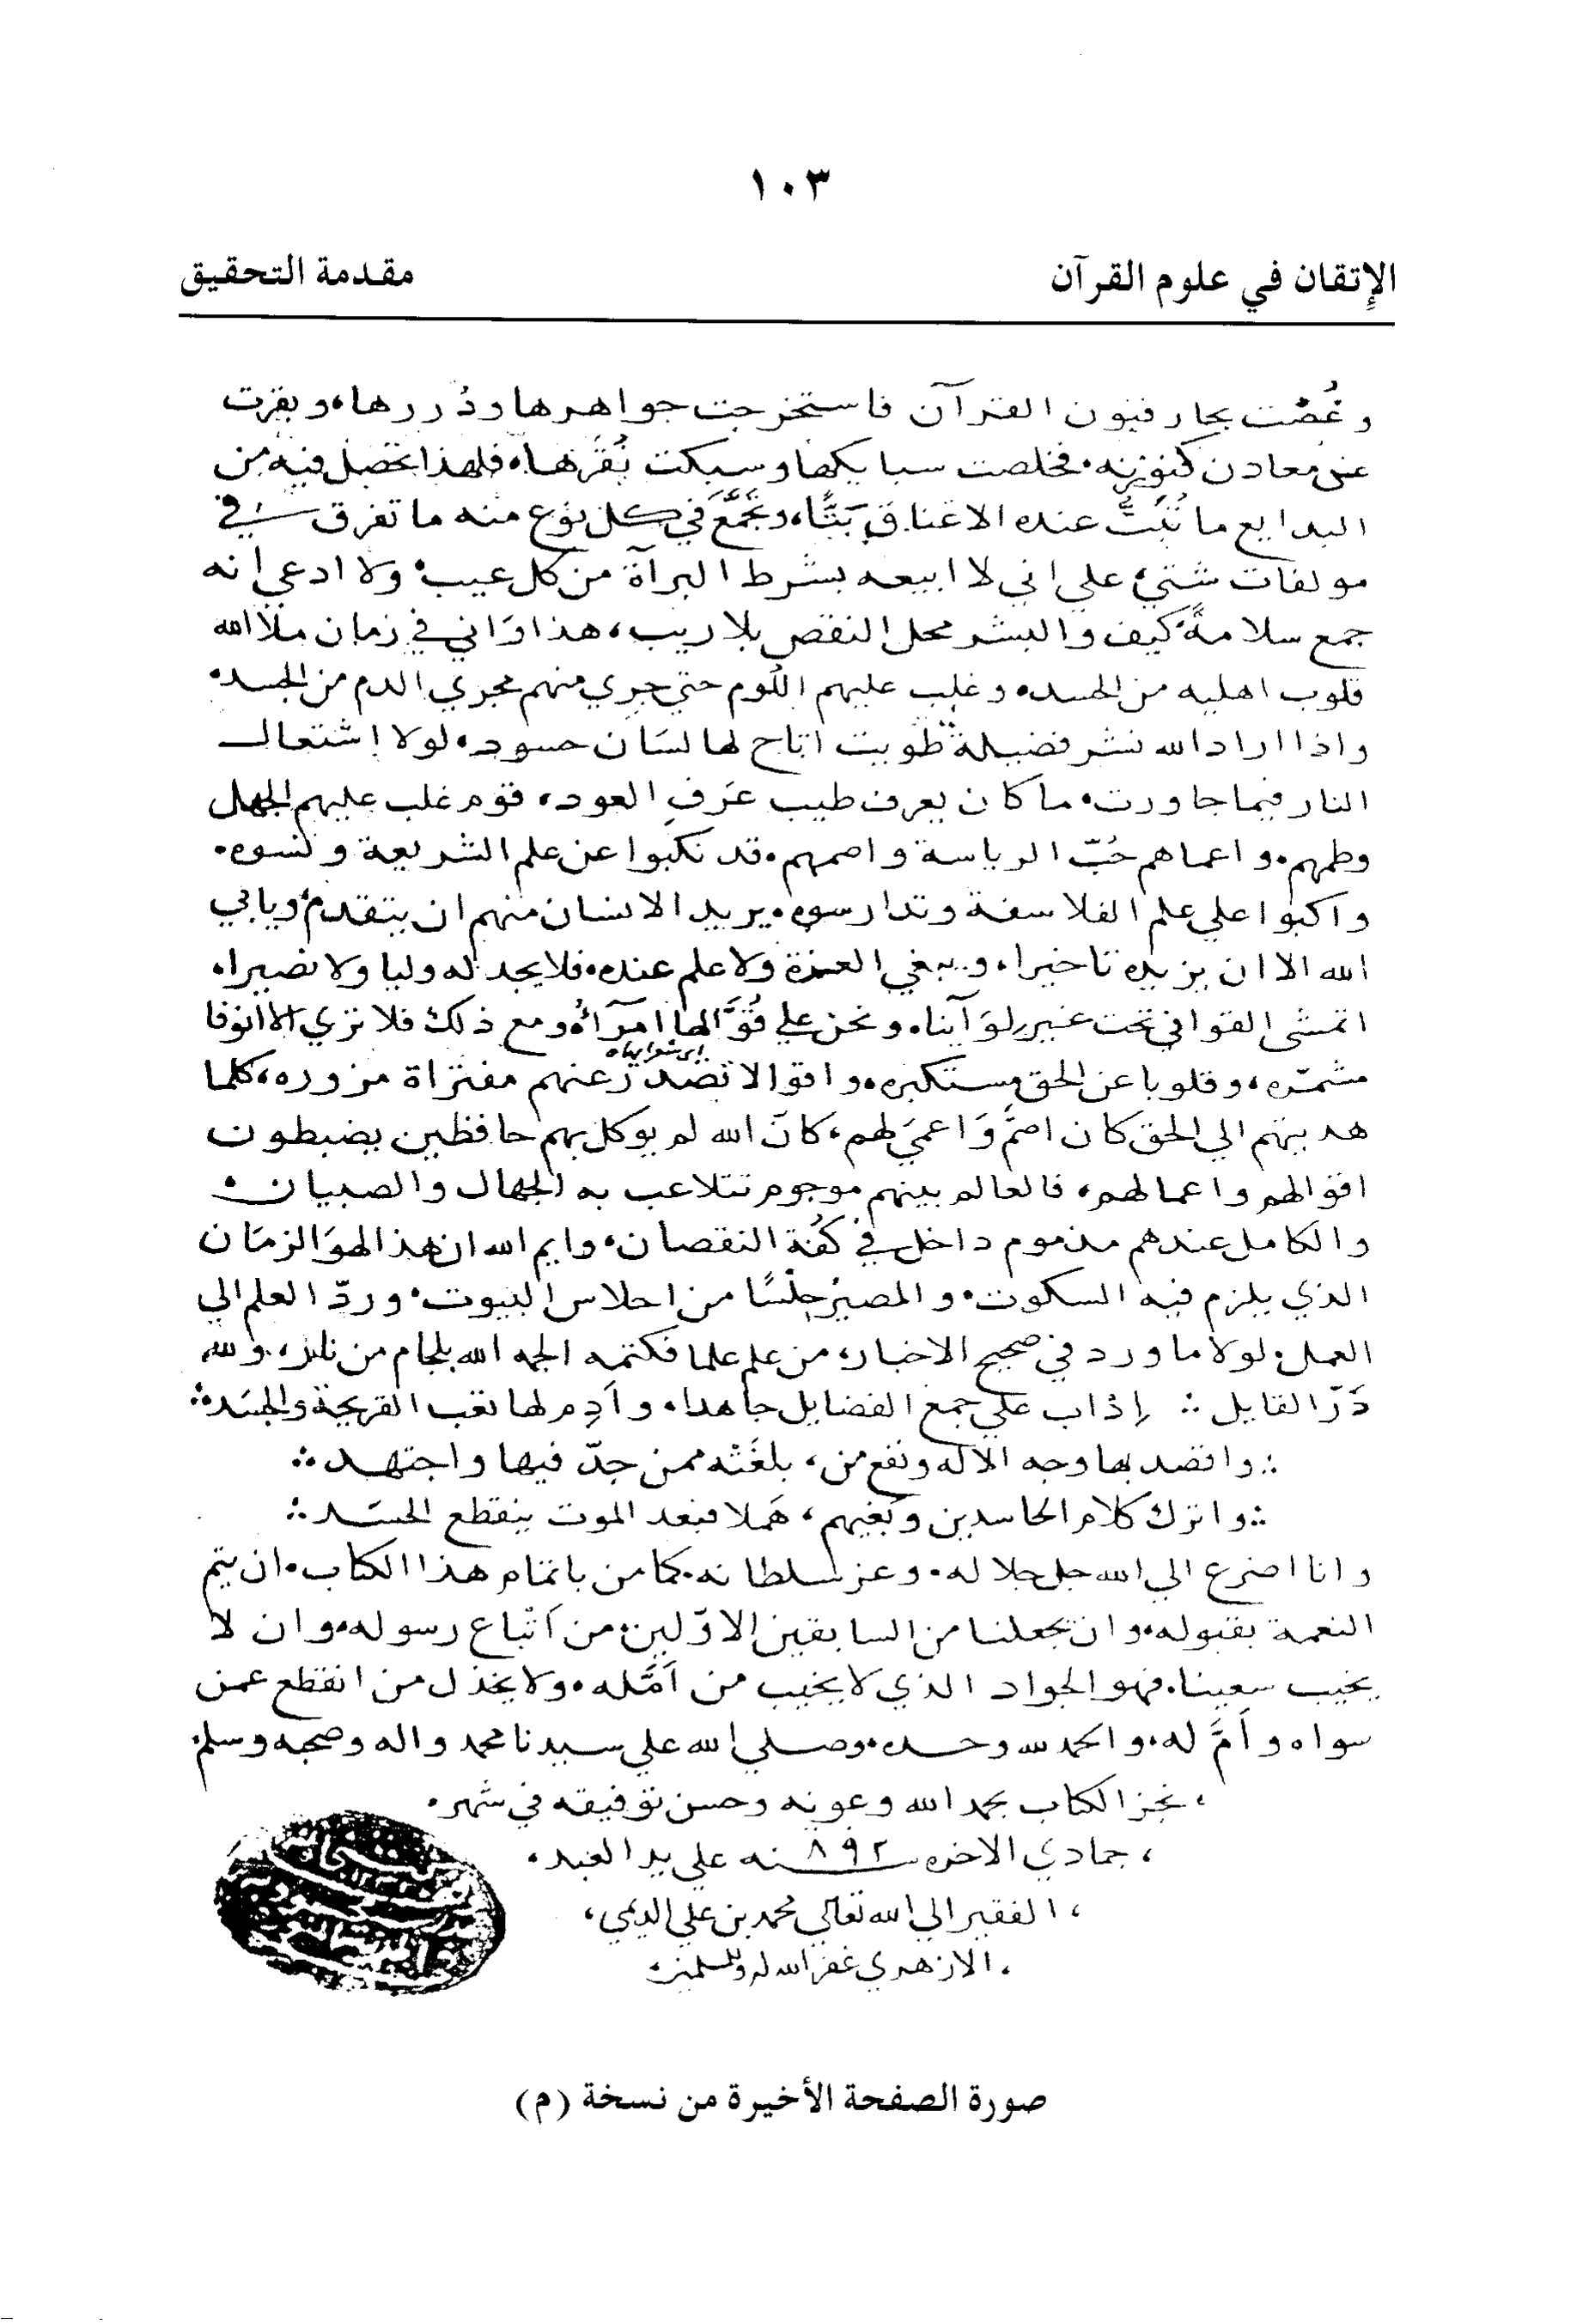 ١٠٣
الإتقان في علوم القرآن
مقدمة التحقيق
وغُصْت بحار فنون القرآن فاستخرجت جواهرها ودُررها، وبقرت
عن معادن كنوزه فخلصت سبايكها وسبكت نُقَرَها، فلهذا تحصل فيه من
البدايع ما تُبَتُّ عنده الاعناق بَتًّا، وتجمَّعَ في كل نوع منه ما تفرق في
مولفات شتي، علي اني لا ابيعه بشرط البرآة من كل عيب، ولا ادعي انه
جمع سلامةٍ، كيف والبشر محل النقص بلا ريب، هذا وَاني في زمان ملا الله
قلوب اهليه من الحسد، وغلب عليهم اللُّوم حتي جري منهم مجري الدم من الجسد،
واذا اراد الله نشر فضيلة طويت اتاح لها لسَان حسود، لولا اشتعال
النار فيما جاورت، ما كان يعرف طيب عَرفِ العود، قوم غلب عليهم الجهل
وطمهم، واعماهم حُبّ الرياسة واصمهم، قد نكبوا عن علم الشريعة ونسوه،
واكبوا علي علم الفلاسفة وتدارسوه، يريد الانسان منهم ان يتقدم، ويابي
الله الا ان يزيده تاخيرا، ويبغي العزة ولا علم عنده، فلا يجد له وليا ولا نصيرا،
اتمشي القوافي تحت غير لوَآينا، ونحن علي قُوَّالها امرآءُ، ومع ذلك فلا تري الا انوفا
مشمّره، وقلوبا عن الحق مستكبره، واقوالا تصْدر عنهم مفتراة مزوره، كلما
هديتهم الي الحق كان اصمَّ وَاعميَ لهم، كانّ الله لم يوكل بهم حافظين يضبطون
اقوالهم واعمالهم، فالعالم بينهم موجوم تتلاعب به الجهال والصبيان،
والكامل عندهم مذموم داخل في كفّة النقصان، وايم الله ان هذا لهوَ الزمَان
الذي يلزم فيه السكوت، والمصيرُ حِلْسًا من احلاس البيوت، وردّ العلم الي
العمل، لولا ما ورد في صحيح الاخبار، من علم علما فكتمه الجمه الله بلجام من نار، ولله
دَرّ القايل ∴ إدْاب علي جمع الفضايل جاهدا، وأدِم لها تعب القريحة والجسَد ∴
∴ واقصد بها وجه الاله ونفع من، بلغَتْه ممن جدّ فيها واجتهد ∴
∴ واترك كلام الحاسدين وبَغيهم، هَملا فبعد الموت ينقطع الحسَد ∴
وانا اضرع الي الله جل جلاله، وعز سلطانه، كما من باتمام هذا الكتاب، ان يتم
النعمة بقبوله، وان يجعلنا من السابقين الاوّلين، من اَتْباع رسوله، وان لا
يخيب سعينا، فهو الجواد الذي لا يخيب من اَمَّله، ولا يخذل من انقطع عمن
سواه وأَمَّ له، والحمد لله وحده، وصلي الله علي سيدنا محمد واله وصحبه وسلم
، نجز الكتاب بحمد الله وعونه وحسن توفيقه في شهر،
، جمادي الاخره سنه ٨٩٢ علي يد العبد،
، الفقير الي الله تعالي محمد بن علي الديمي،
، الازهري غفر الله له وللمسلمين
صورة الصفحة الأخيرة من نسخة (م)